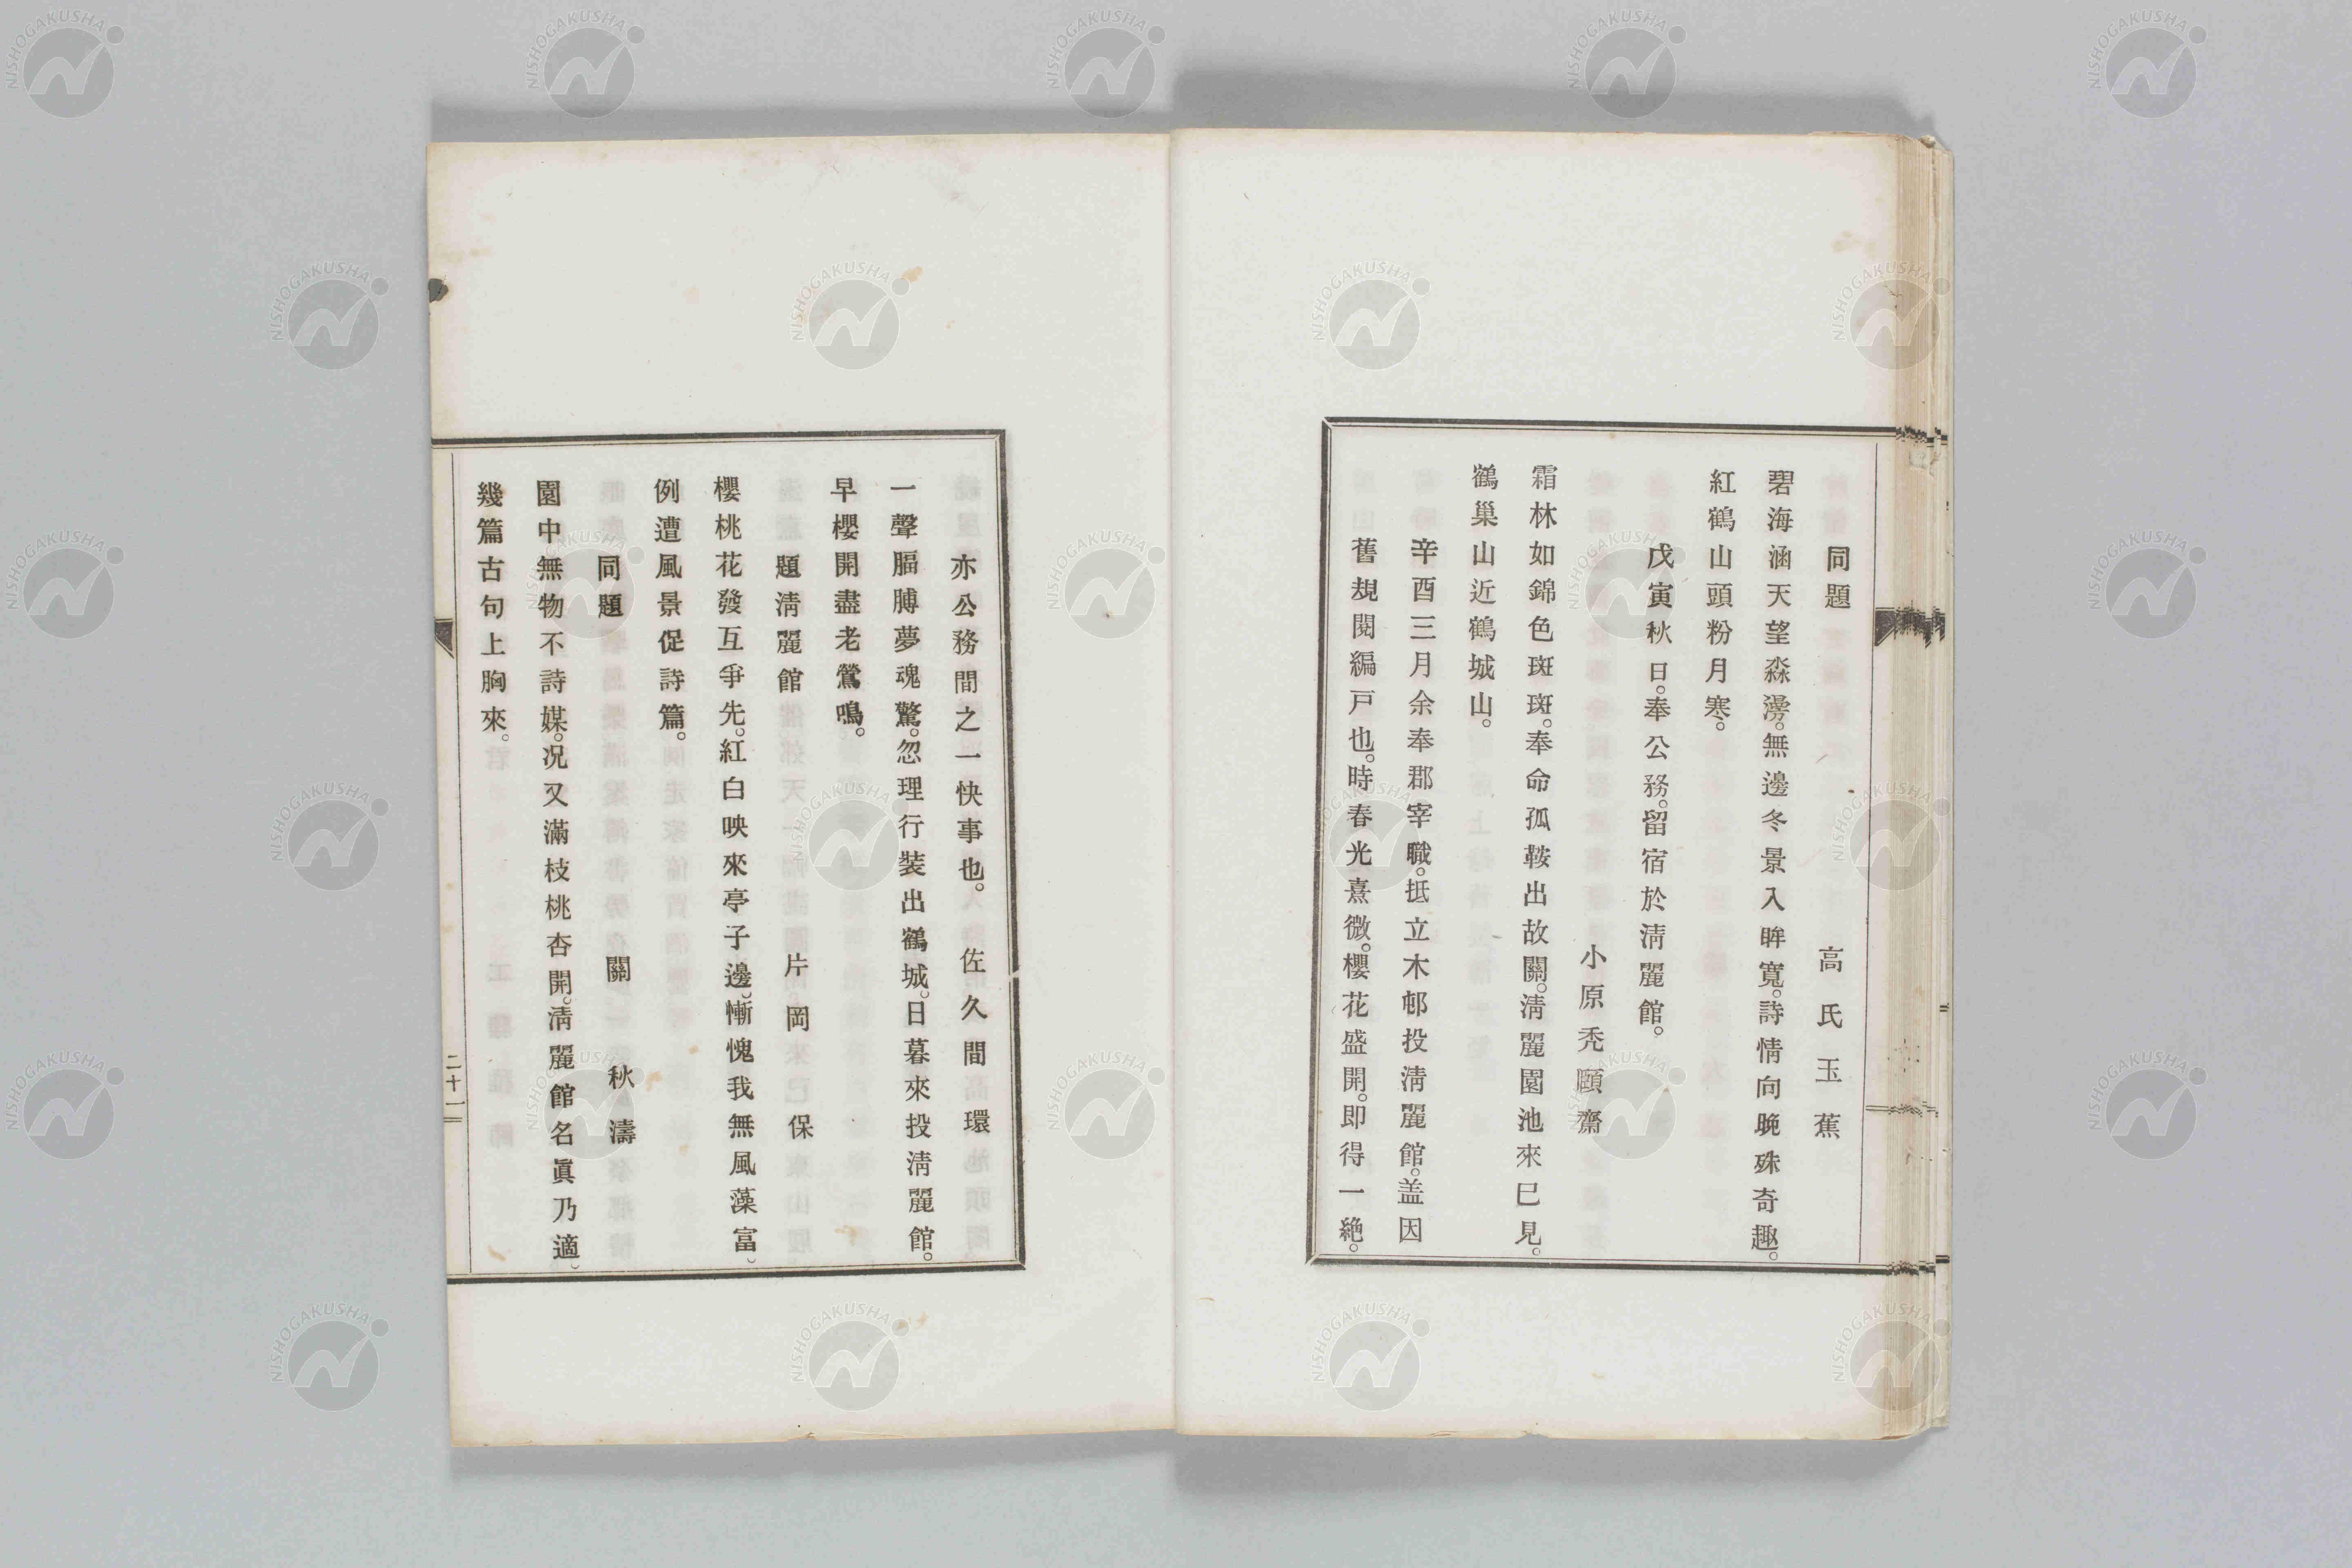 同題　高氏玉蕉
碧海涵天望淼漫。無邊冬景入眸寬。詩情向晚殊奇趣。
紅鶴山頭粉月寒。
戊寅秋日。奉公務。留宿於淸麗館。
小原禿頤齋
霜林如錦色斑斑。奉命孤鞍出故關。淸麗園池來巳見。
鶴巢山近鶴城山。
辛酉三月余奉郡宰職。抵立木邨投淸麗館。盖因
舊規閱編戸也。時春光熹微。櫻花盛開。即得一絶。
亦公務間之一快事也。　佐久間環
一聲腷膊夢魂驚。忽理行裝出鶴城。日暮來投淸麗館。
早櫻開盡老鶯鳴。
題淸麗館　片岡保
櫻桃花發互爭先。紅白映來亭子邊。慚愧我無風藻富。
例遭風景促詩篇。
同題　關秋濤
園中無物不詩媒。况又滿枝桃杏開。淸麗館名眞乃適。
幾篇古句上胸來。
二十一
NISHOGAKUSHA